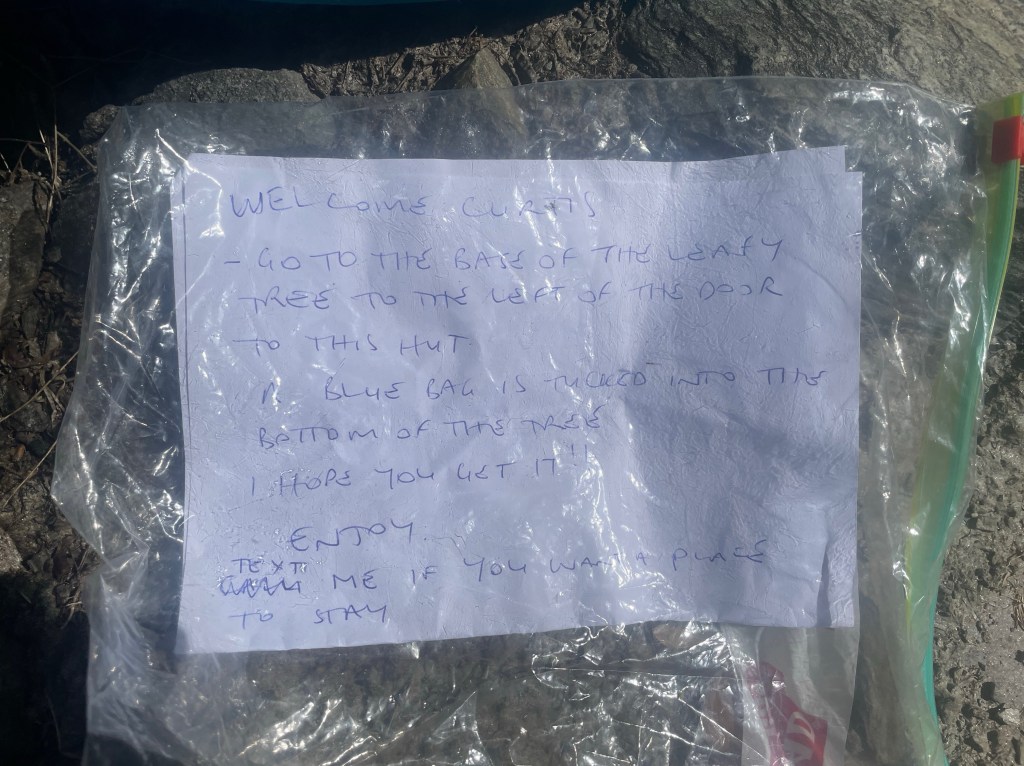 WELCOME CURTIS
- GO TO THE BASE OF THE LEAFY
TREE TO THE LEFT OF THE DOOR
TO THIS HUT
A BLUE BAG IS TUCKED INTO THE
BOTTOM OF THE TREE
I HOPE YOU GET IT!!
ENJOY...
TEXT
ME IF YOU WANT A PLACE
TO STAY